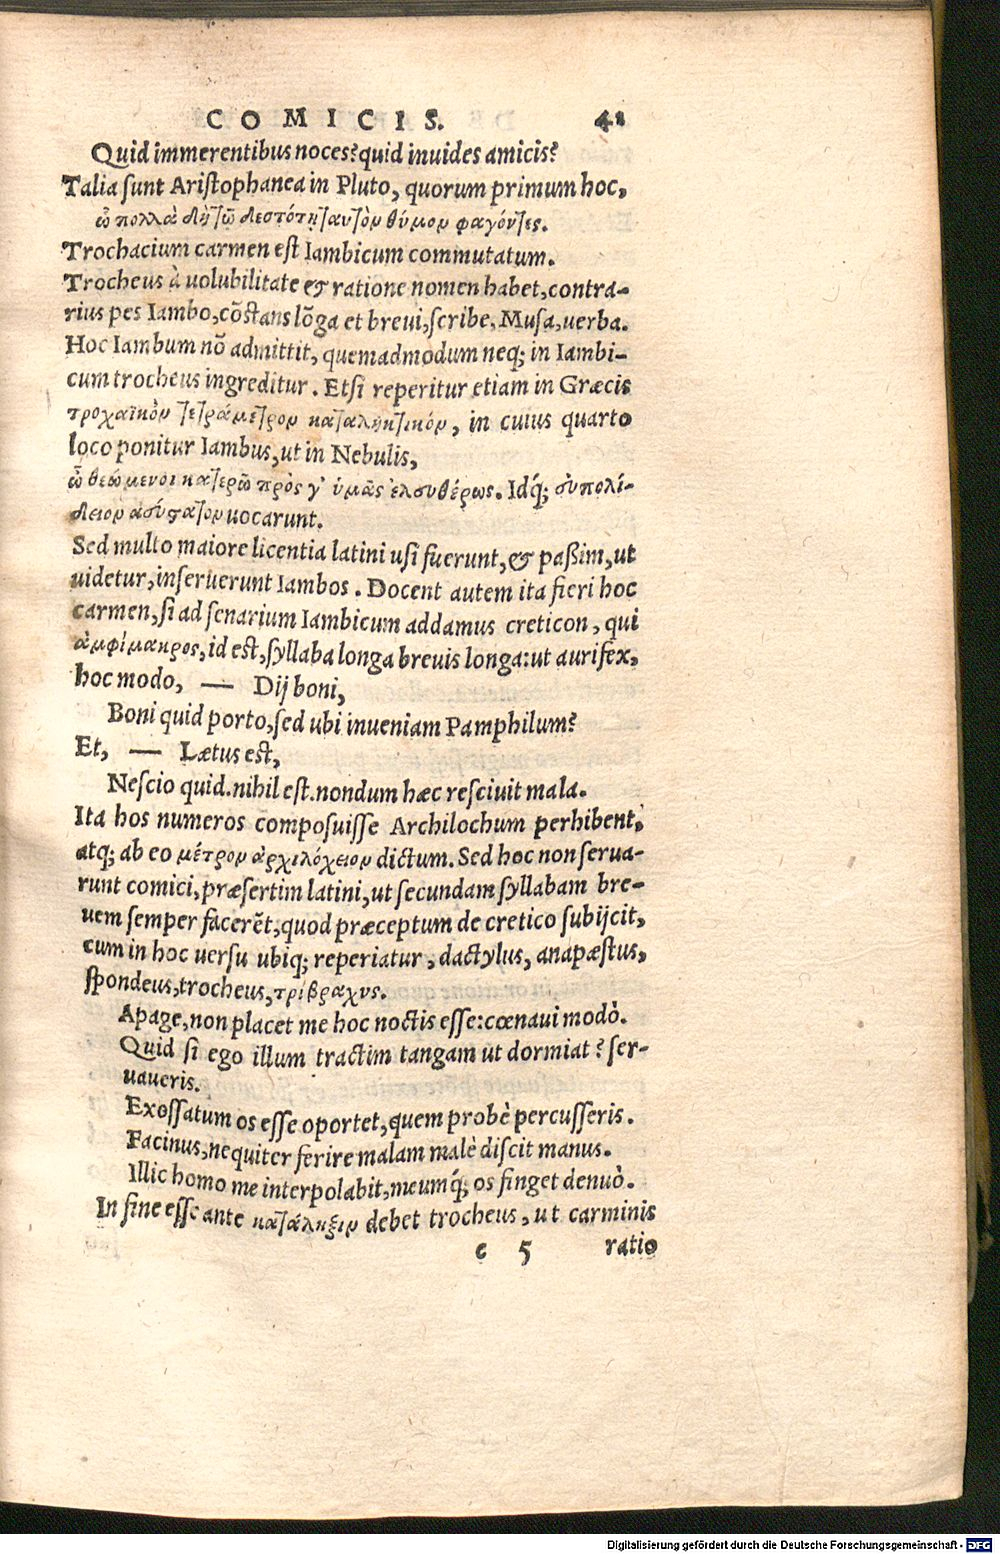 COMICIS. 41
Quid immerentibus noces? quid inuides amicis?
Talia ſunt Ariſtophanea in Pluto, quorum primum hoc,
ὦ πολλὰ δὴ τῷ δεσπότῃ ταυτὸν θύμον φαγόντες.
Trochacium carmen eſt Iambicum commutatum.
Trocheus à uolubilitate & ratione nomen habet, contra-
rius pes Iambo, cõſtans lõga et breui, ſcribe, Muſa, uerba.
Hoc Iambum nõ admittit, quemadmodum neq; in Iambi-
cum trocheus ingreditur. Etſi reperitur etiam in Græcis
τροχαϊκὸν τετράμετρον καταληκτικόν, in cuius quarto
loco ponitur Iambus, ut in Nebulis,
ὦ θεώμενοι κατερῶ πρὸς γ' ὑμᾶς ἐλευθέρως. Idq́;
uocarunt.
Sed multo maiore licentia latini uſi fuerunt, & paßim, ut
uidetur, inſeruerunt Iambos. Docent autem ita fieri hoc
carmen, ſi ad ſenarium Iambicum addamus creticon, qui
ἀμφίμακρος, id eſt, ſyllaba longa breuis longa: ut aurifex,
hoc modo, — Dij boni,
Boni quid porto, ſed ubi inueniam Pamphilum?
Et, — Lætus eſt,
Neſcio quid. nihil eſt. nondum hæc reſciuit mala.
Ita hos numeros compoſuiſſe Archilochum perhibent,
atq; ab eo μέτρον ἀρχιλόχειον dictum. Sed hoc non ſerua-
runt comici, præſertim latini, ut ſecundam ſyllabam bre-
uem ſemper facerẽt, quod præceptum de cretico ſubijcit,
cum in hoc uerſu ubiq; reperiatur, dactylus, anapæſtus,
ſpondeus, trocheus, τρίβραχυς.
Apage, non placet me hoc noctis eſſe: cœnaui modò.
Quid ſi ego illum tractim tangam ut dormiat? ſer-
uaueris.
Exoſſatum os eſſe oportet, quem probè percuſſeris.
Facinus, nequiter ferire malam malè diſcit manus.
Illic homo me interpolabit, meumq́; os finget denuò.
In fine eſſe ante κατάληξιν debet trocheus, ut carminis
c 5 ratio
Digitalisierung gefördert durch die Deutsche Forschungsgemeinschaft - DFG